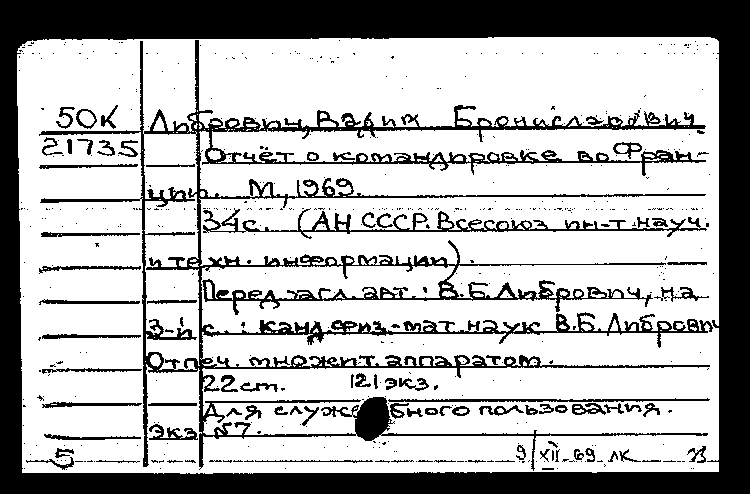 50К Либрович, Вадим Брониславович.
21735 Отчёт о командировке во Фран-
ции. М., 1969.
34с. (АН СССР. Всесоюз. ин-т науч.
и техн. информации).
Перед загл. авт.: В.Б. Либрович, на
3-й с.: канд. физ.-мат. наук В.Б. Либрович
Отпеч. множит. аппаратом.
22 ст. 121 экз.
Для служебного пользования.
экз №7.
5 9/XII-69 лк